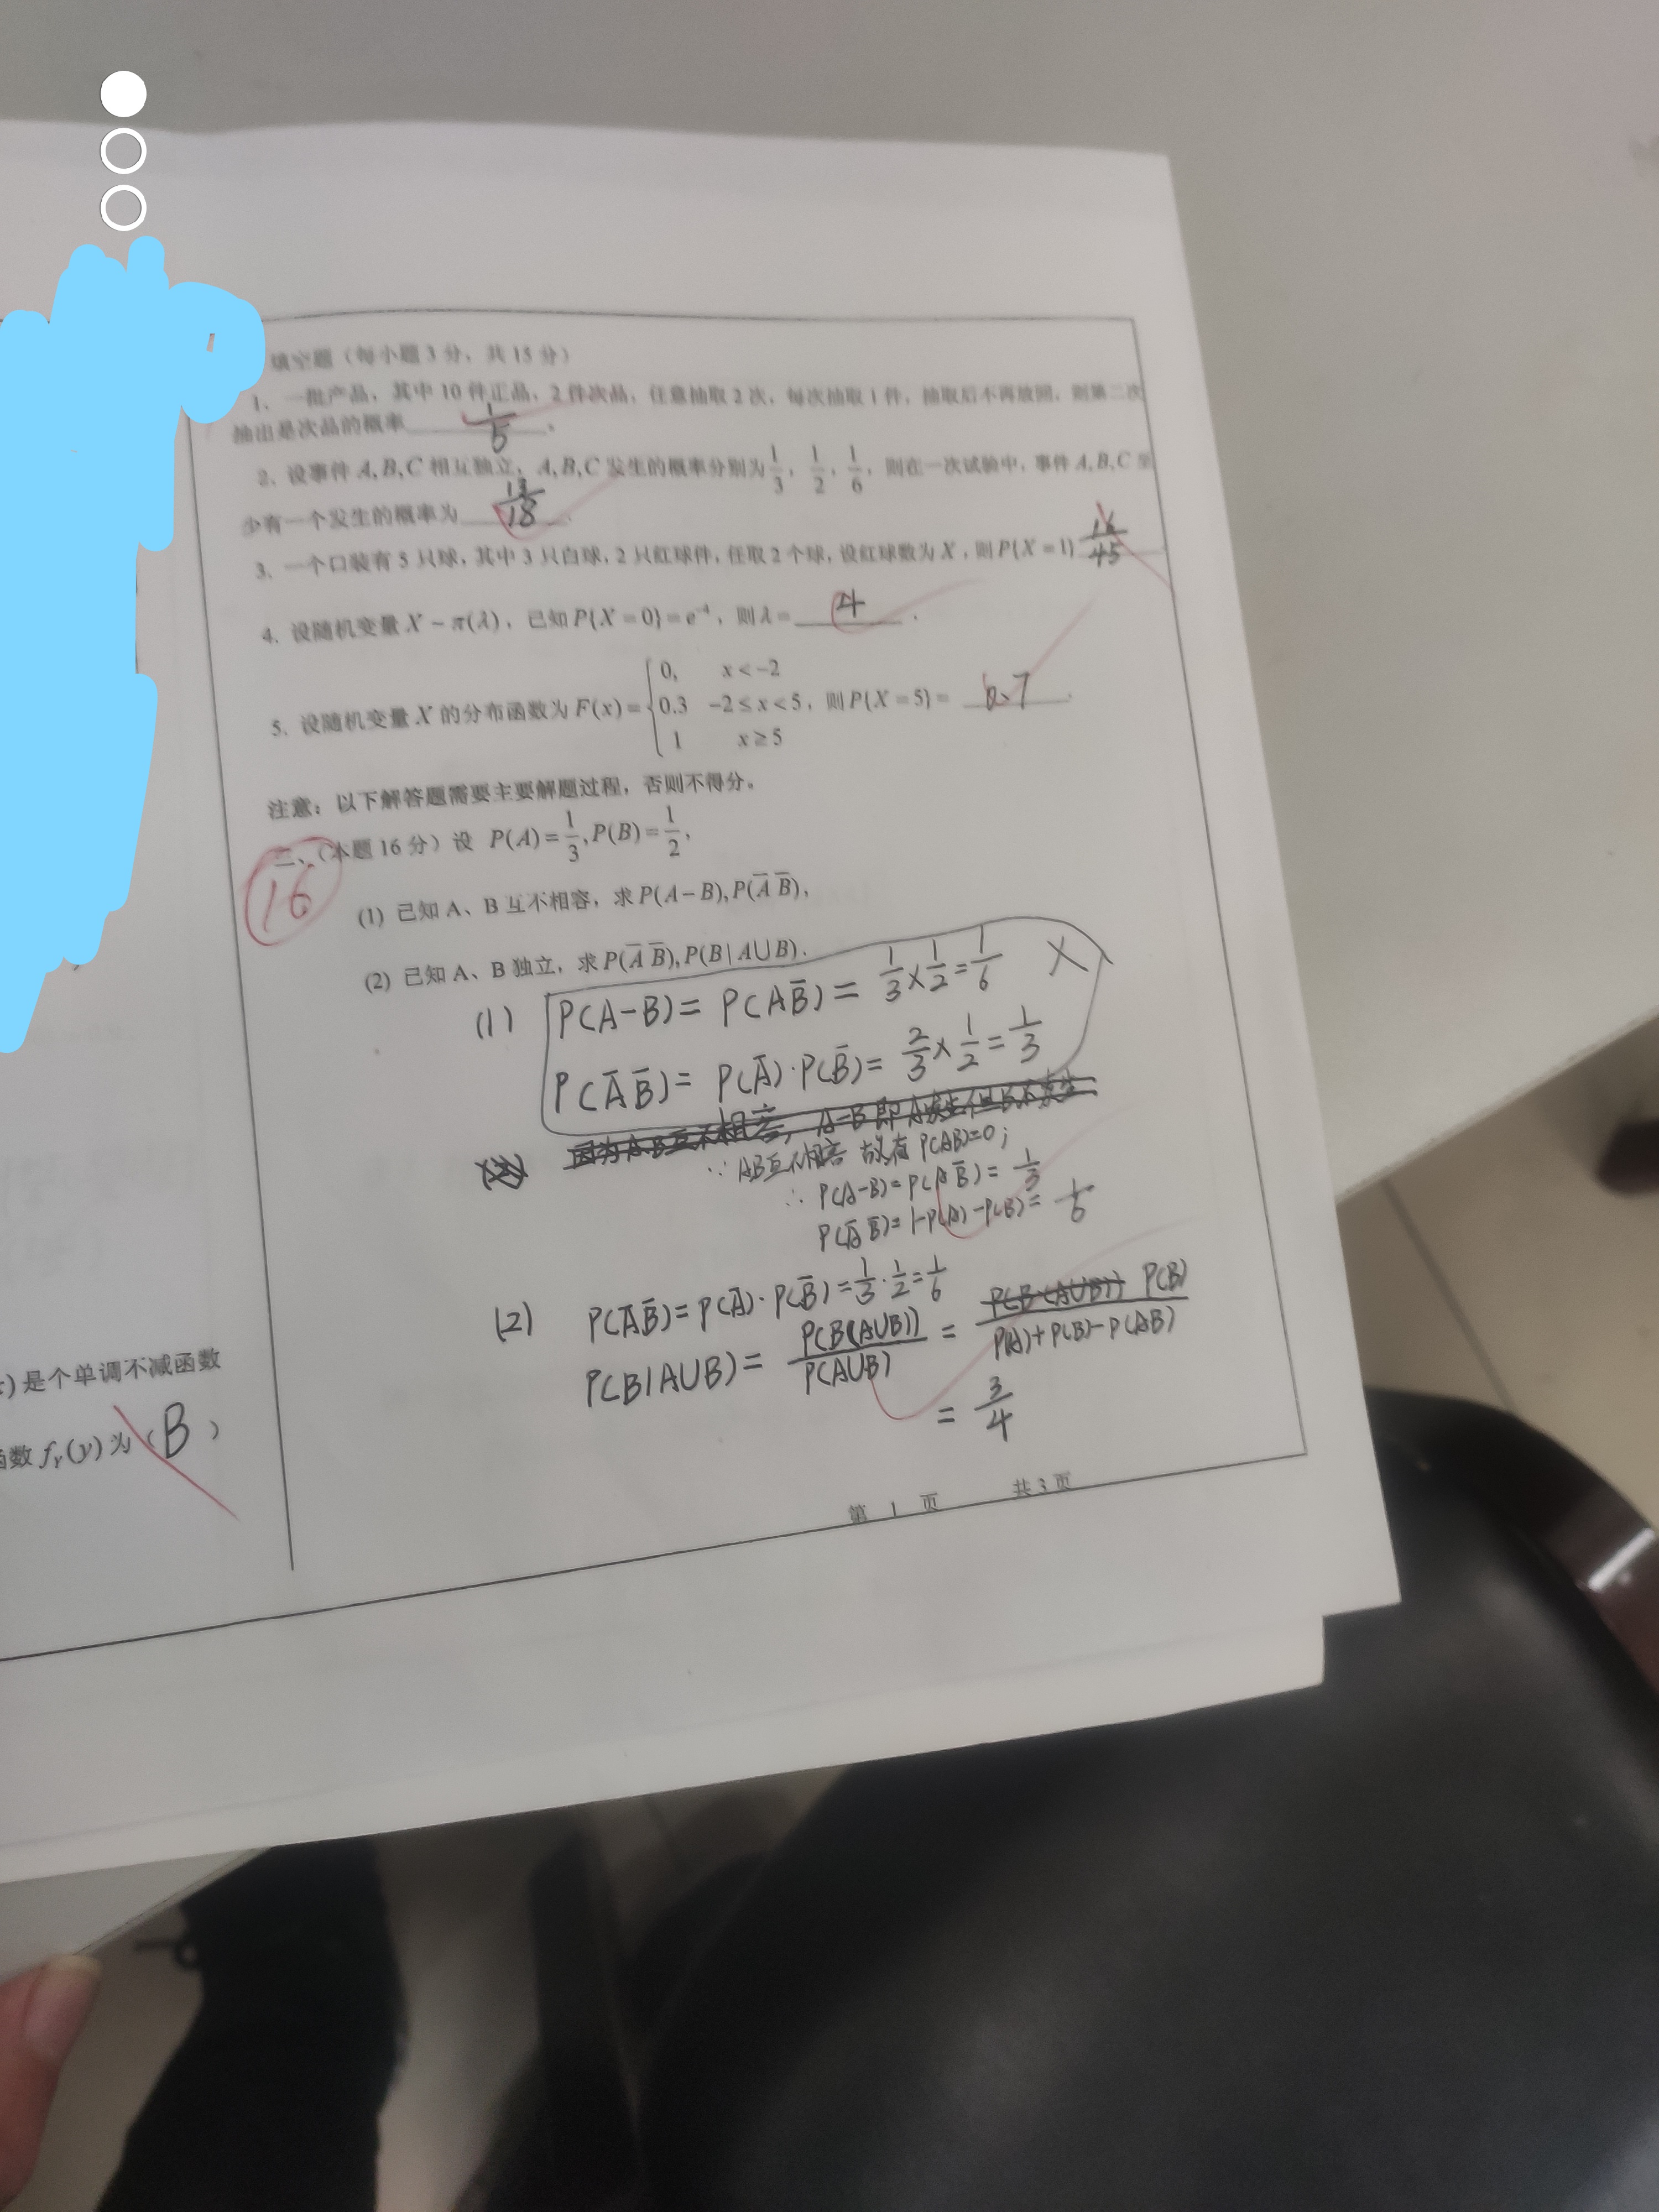 填空题（每小题3分，共15分）
1. 一批产品，其中10件正品，2件次品，任意抽取2次，每次抽取1件，抽取后不再放回，则第二次
抽出是次品的概率 1/6 。
2. 设事件 A,B,C 相互独立，A,B,C 发生的概率分别为 1/3，1/2，1/6，则在一次试验中，事件 A,B,C 至
少有一个发生的概率为 13/18 .
3. 一个口装有5只球，其中3只白球，2只红球件，任取2个球，设红球数为 X，则 P{X=1} 16/45
4. 设随机变量 X ~ π(λ)，已知 P{X=0}=e⁻⁴，则 λ= 4 .
5. 设随机变量 X 的分布函数为 F(x)= { 0, x<-2
0.3 -2≤x<5，则 P{X=5}= 0.7 .
1 x≥5
注意：以下解答题需要主要解题过程，否则不得分。
16
二、（本题16分）设 P(A)=1/3, P(B)=1/2,
(1) 已知 A、B 互不相容，求 P(A-B), P(A̅ B̅),
(2) 已知 A、B 独立，求 P(A̅ B̅), P(B|A∪B).
(1) P(A-B)= P(AB̅)= 1/3×1/2=1/6 ×
P(A̅B̅)= P(A̅)·P(B̅)= 2/3×1/2=1/3
因为AB互不相容，A-B即A发生但B不发生
∵AB互不相容 故有 P(AB)=0;
∴ P(A-B)=P(AB̅)= 1/3
P(A̅B̅)=1-P(A)-P(B)= 1/6
(2) P(A̅B̅)=P(A̅)·P(B̅)=1/3·1/2=1/6
P(B|A∪B)= P(B(A∪B))/P(A∪B) = P(B(A∪B)) P(B)/P(A)+P(B)-P(AB)
= 3/4
)是个单调不减函数
函数 fY(y) 为（B）
第 1 页 共3页